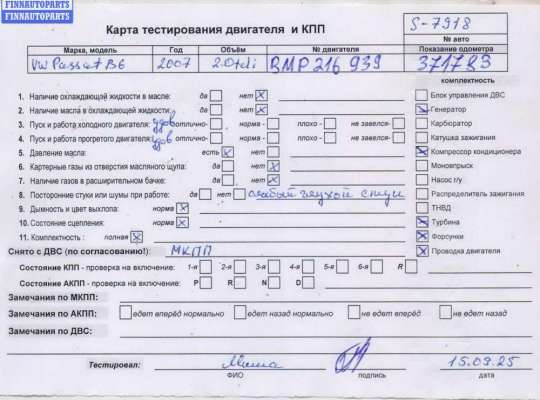 FINNAUTOPARTS
FINNAUTOPARTS
Карта тестирования двигателя и КПП
S-7918
№ авто
Марка, модель Год Объём № двигателя Показание одометра
VW Passat B6 2007 2.0tdi BMP 216 939 371783
комплектность
1. Наличие охлаждающей жидкости в масле: да нет x Блок управления ДВС
2. Наличие масла в охлаждающей жидкости: да нет x Генератор
3. Пуск и работа холодного двигателя: удов отлично- норма - плохо - не завелся- Карбюратор
4. Пуск и работа прогретого двигателя: удов отлично- норма - плохо - не завелся- Катушка зажигания
5. Давление масла: есть x нет Компрессор кондиционера
6. Картерные газы из отверстия масляного щупа: да нет x Моновпрыск
7. Наличие газов в расширительном бачке: да нет x Насос г/у
8. Посторонние стуки или шумы при работе: да нет слабый глухой стук Распределитель зажигания
9. Дымность и цвет выхлопа: норма x ТНВД
10. Состояние сцепления: норма x Турбина
11. Комплектность : полная x Форсунки
Снято с ДВС (по согласованию!): МКПП Проводка двигателя
Состояние КПП - проверка на включение: 1-я 2-я 3-я 4-я 5-я 6-я R
Состояние АКПП - проверка на включение: P R N D
Замечания по МКПП:
Замечания по АКПП: едет вперёд нормально едет назад нормально не едет вперёд не едет назад
Замечания по ДВС:
Тестировал: Миша 15.09.25
ФИО подпись дата